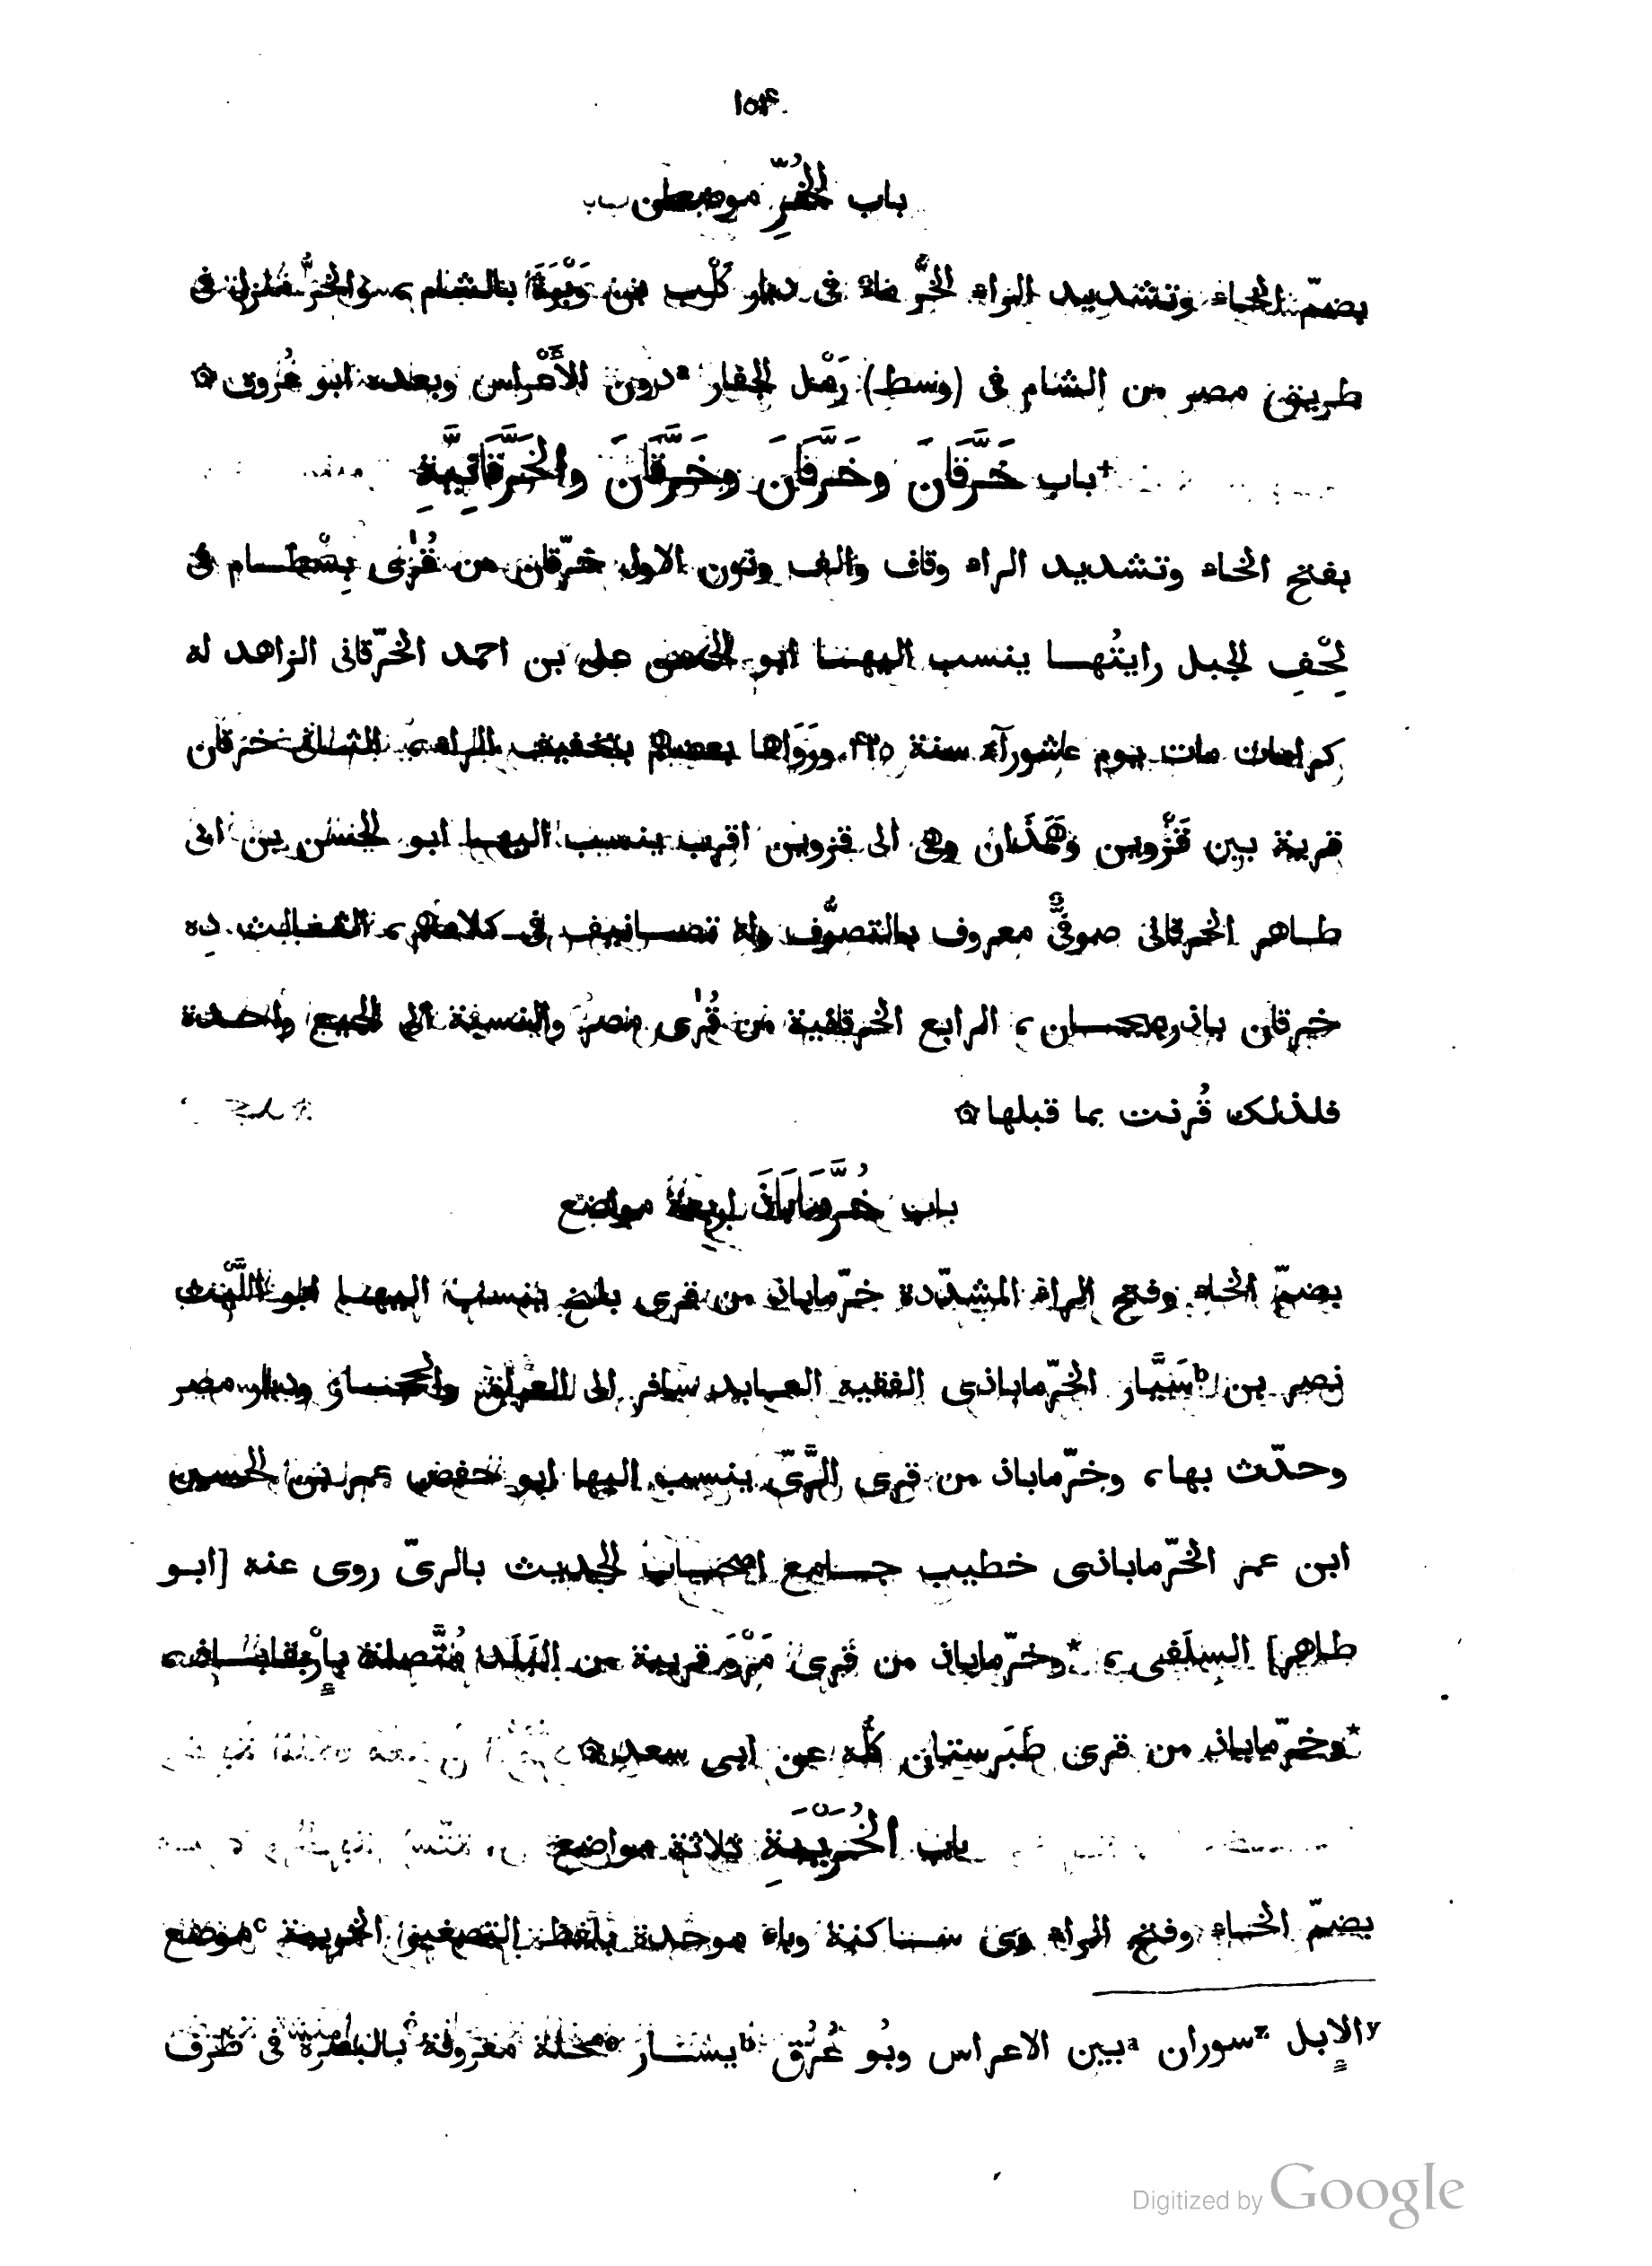 ١٥٤
باب الخُرِّ موضعان
بضمّ الخاء وتشديد الراء الخُرُّ ماء فى ديار كَلْب بن وَبْرَة بالشام، والخرُّ منزل فى
طريق مصر من الشام فى (وسط) رَمْل الجفار ªدون الأَعْراس وبعده ابو عُروق۞
+باب خَرَّقانَ وخَرَّقانَ وخَرَّقانَ والخَرَّقانِيَّةِ
بفتح الخاء وتشديد الراء وقاف والف ونون الاول خرّقان من قُرٰى بِسْطام فى
لِحْفِ الجبل رايتُها ينسب اليها ابو الحسن على بن احمد الخرّقانى الزاهد له
كرامات مات يوم عاشورآء سنة ۴۲٥ ورَوَاها بعضهم بتخفيف الراء، الثانى خرقان
قرية بين قَزْوين وهَمَذان وهى الى قزوين اقرب ينسب اليها ابو الحسن بن ابى
طاهر الخرقانى صوفىٌّ معروف بالتصوُّف وله تصانيف فى كلامهم، الثالث ده
خرقان باذربيجان، الرابع الخرقانية من قُرٰى مصر والنسبة الى الجميع واحدة
فلذلك قُرنت بما قبلها۞
باب خُرَّمَابَاذَ اربعة مواضع
بضمّ الخاء وفتح الراء المشدّدة خرّماباذ من قرى بلخ ينسب اليها ابو اللَّيْث
نصر بن bسَيَّار الخرّماباذى الفقيه العابد سافر الى العراق والحجاز وديار مصر
وحدّث بها، وخرّماباذ من قرى الرَّىّ ينسب اليها ابو حفص عمر بن الحسين
ابن عمر الخرّماباذى خطيب جامع اصحاب الحديث بالرىّ روى عنه [ابو
طاهر] السِلَفى، *وخرّماباذ من قُرى مَرْوَ قريبة من البَلَد مُتَّصلة بإِرْبقاباذ،
*وخرّماباذ من قرى طَبَرستان كلُّه عن ابى سعد۞
باب الخُرَيْبَةِ ثلاثة مواضع
بضمّ الخاء وفتح الراء وى ساكنة وباء موحدة بلفظ التصغير الخريبة cموضع
yالإبل zسوران aبين الاعراس وبُو عُرُق bيشار cمحلة معروفة بالبصرة فى طرف
Digitized by Google